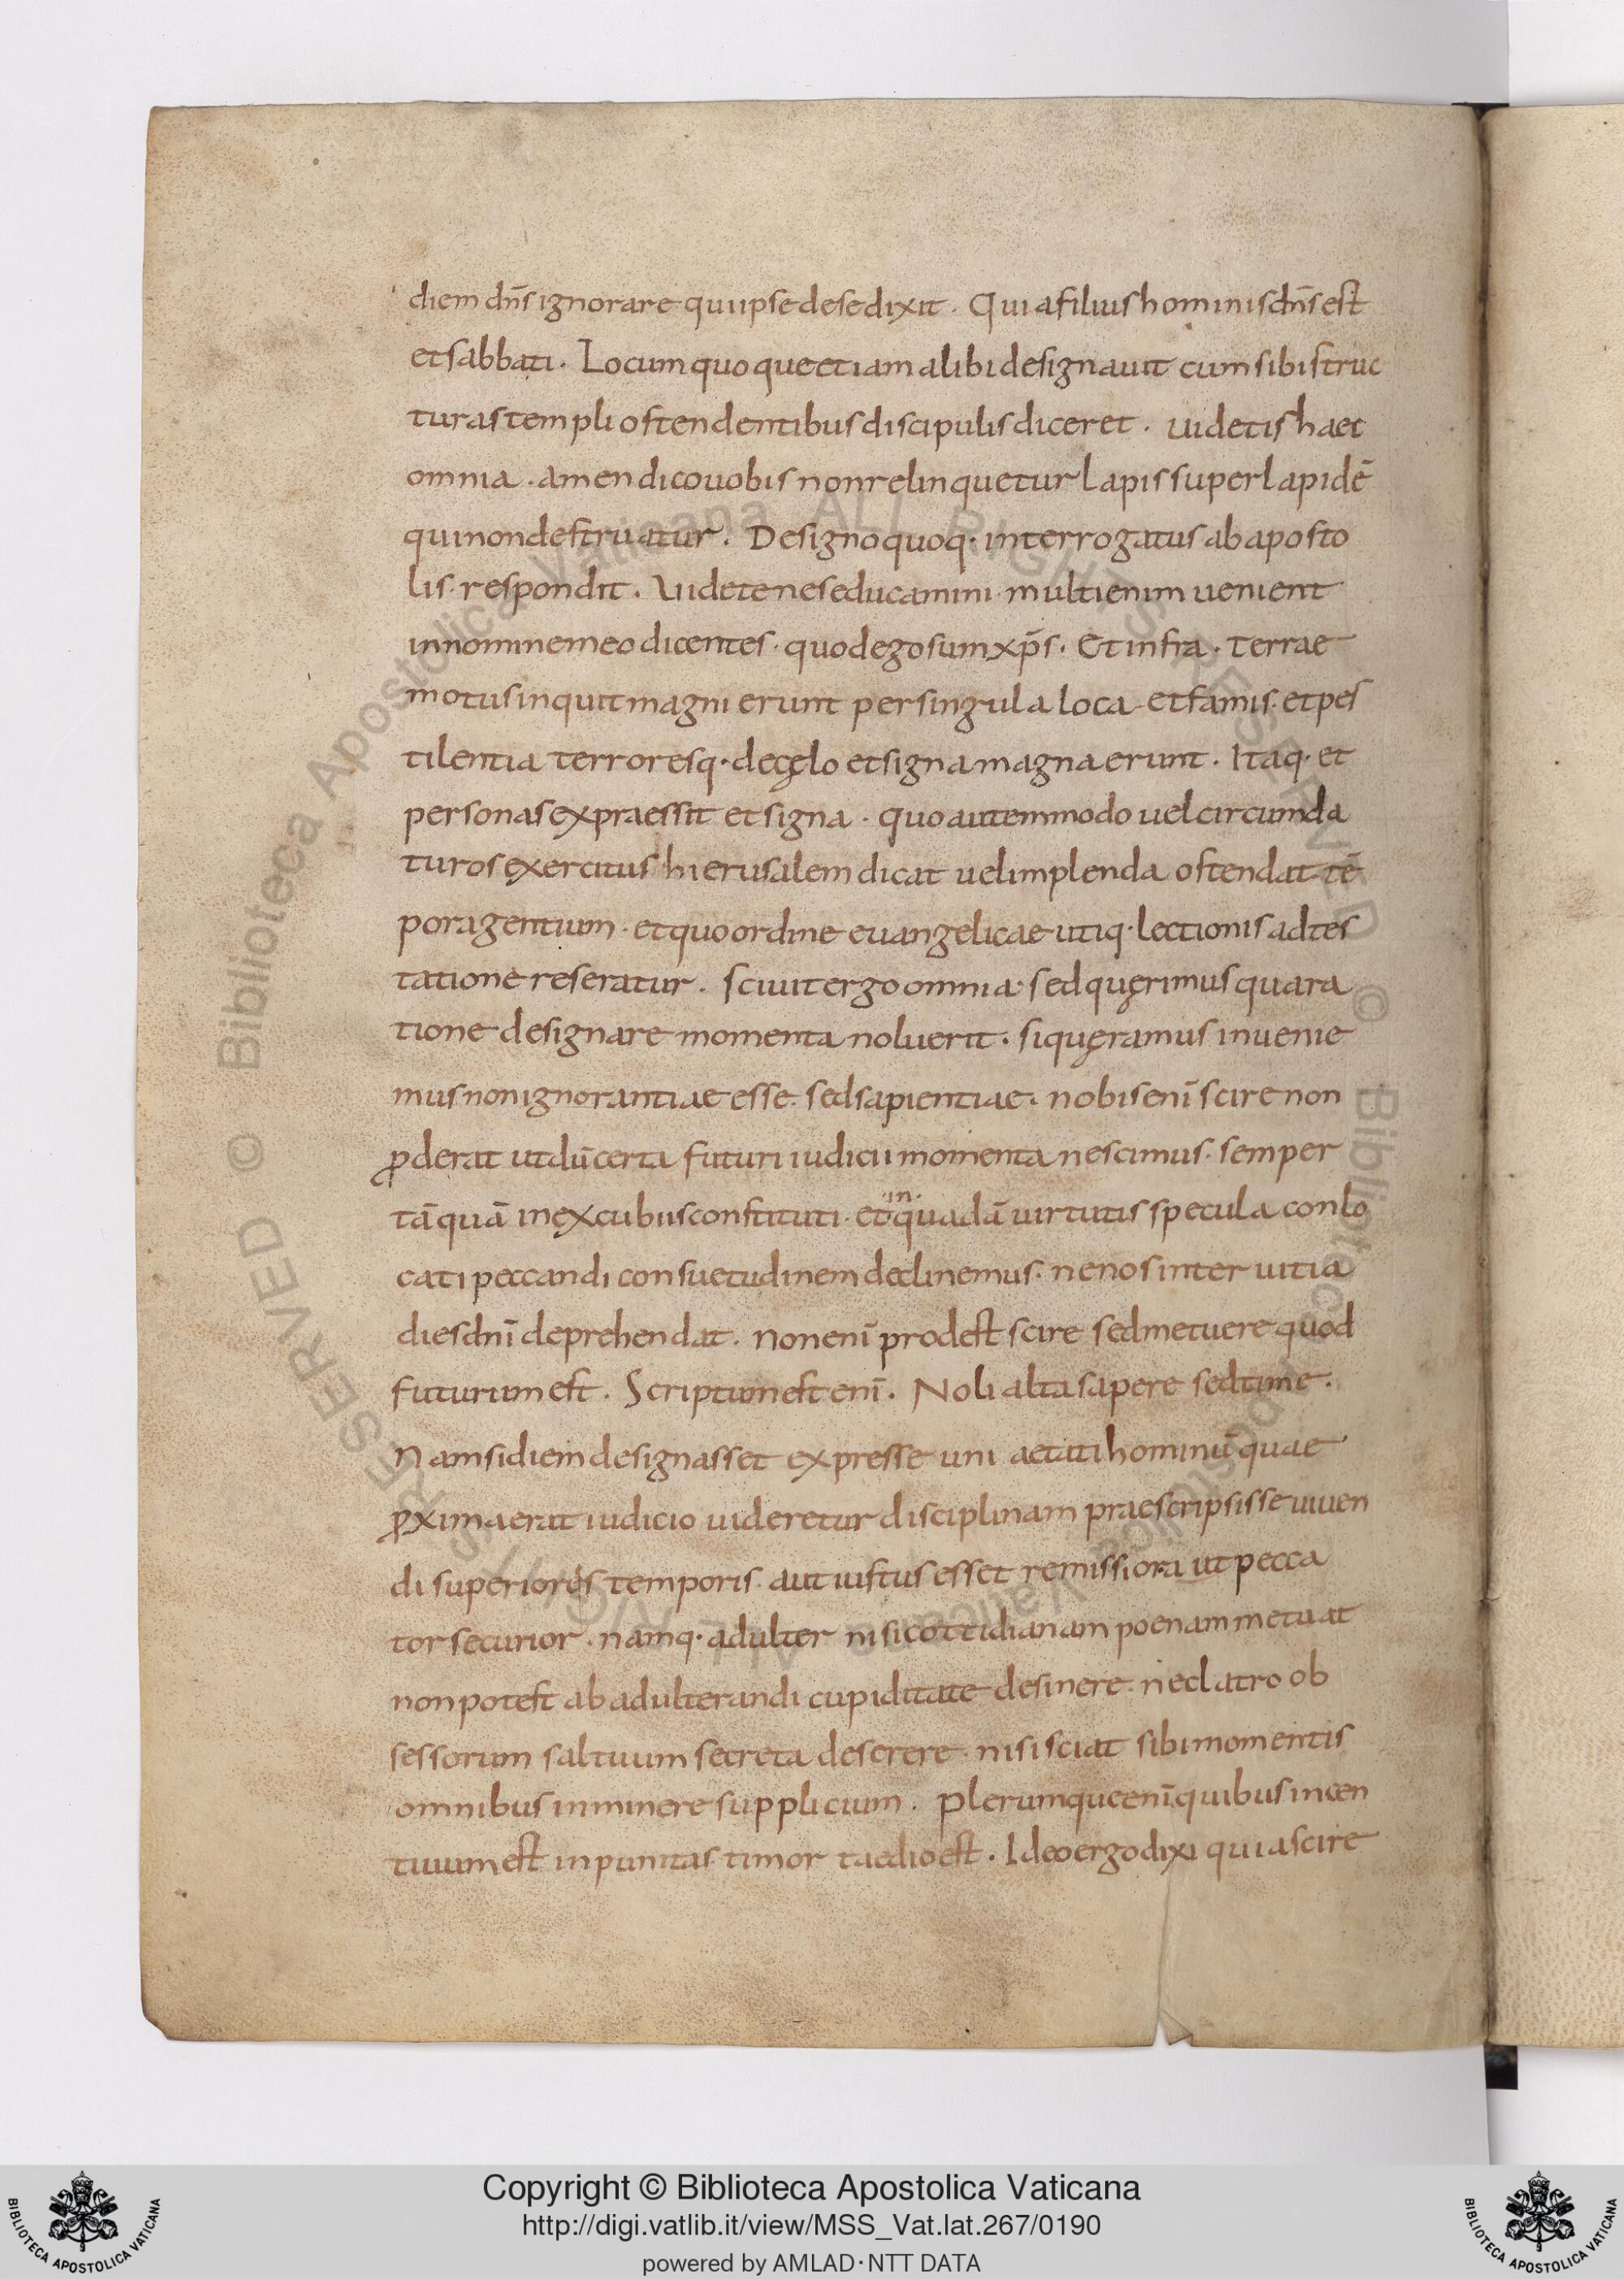 diem dn̄s ignorare qui ipse de se dixit. Quia filius hominis dn̄s est
et sabbati. Locum quoque etiam alibi designauit cum sibi struc
turas templi ostendentibus discipulis diceret. uidetis haec
omnia. amen dico uobis non relinquetur lapis super lapidē
qui non destruatur. De signo quoq· interrogatus ab aposto
lis· respondit. Uidete ne seducamini· multi enim uenient
in nomine meo dicentes· quod ego sum xp̄s. Et infra. Terrae
motus inquit magni erunt per singula loca et famis· et pes
tilentia terroresq· de cęlo et signa magna erunt. Itaq· et
personas expraessit et signa. quo autem modo uel circumda
turos exercitus hierusalem dicat uel implenda ostendat tē
pora gentium· et quo ordine euangelicae utiq· lectionis adtes
tatione reseratur. sciuit ergo omnia· sed quęrimus qua ra
tione designare momenta noluerit. si quęramus inuenie
mus non ignorantiae esse· sed sapientiae. nobis enī scire non
ꝓderat ut dū certa futuri iudicii momenta nescimus· semper
tāquā in excubiis constituti· et in quadā uirtutis specula conlo
cati peccandi consuetudinem declinemus· ne nos inter uitia
dies dnī deprehendat. Non enī prodest scire sed metuere quod
futurum est. Scriptum est enī. Noli alta sapere sed time.
Nam si diem designasset expresse uni aetati hominū quae
ꝓxima erat iudicio uideretur disciplinam praescripsisse uiuen
di superiores temporis aut iustus esset remissiora ut pecca
tor securior· namq· adulter nisi cottidianam poenam metuat
non potest ab adulterandi cupiditate desinere· nec latro ob
sessorum saltuum secreta deserere· nisi sciat sibi momentis
omnibus inminere supplicium. Plerumque enī quibus incen
tiuum est inpunitas timor taedio est. Ideo ergo dixi quia scire
Copyright © Biblioteca Apostolica Vaticana
http://digi.vatlib.it/view/MSS_Vat.lat.267/0190
powered by AMLAD·NTT DATA
BIBLIOTECA APOSTOLICA VATICANA
BIBLIOTECA APOSTOLICA VATICANA
© Biblioteca Apostolica Vaticana ALL RIGHTS RESERVED © Biblioteca Apostolica Vaticana ALL RIGHTS RESERVED